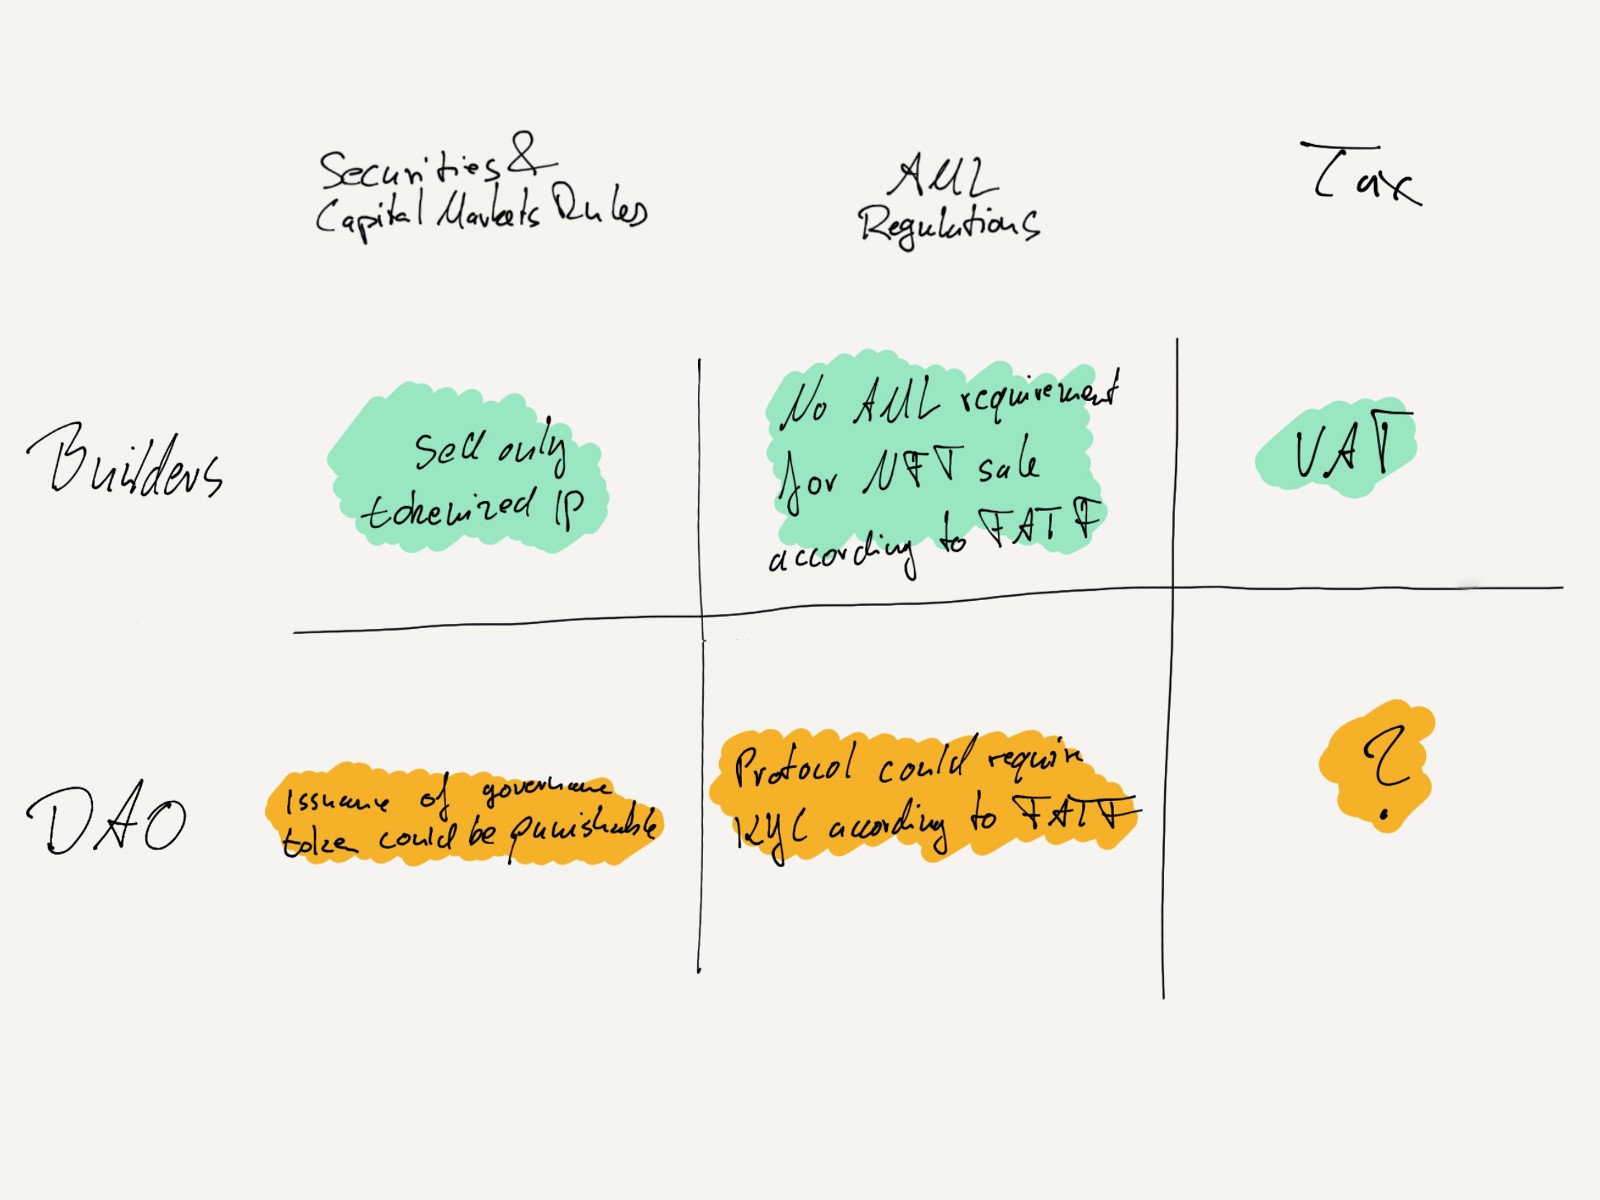 Securities &
Capital Markets Rules
AML
Regulations
Tax
Builders
Sell only
tokenized IP
No AML requirement
for NFT sale
according to FATF
VAT
DAO
Issuance of governance
token could be punishable
Protocol could require
KYC according to FATF
?